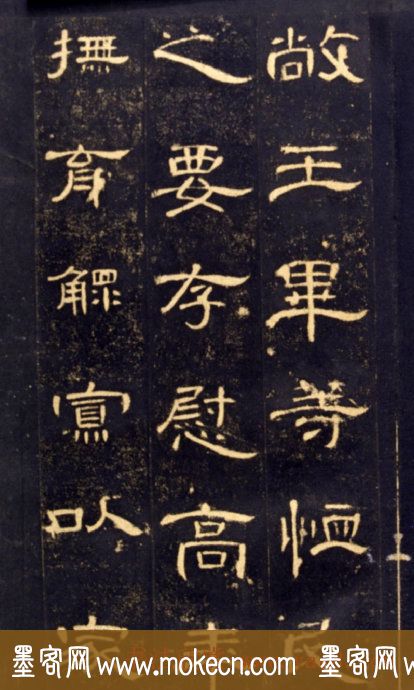 敞王畢等恤民
之要存慰高年
撫育鰥寡以家
墨客网www.mokecn.com 墨客网w